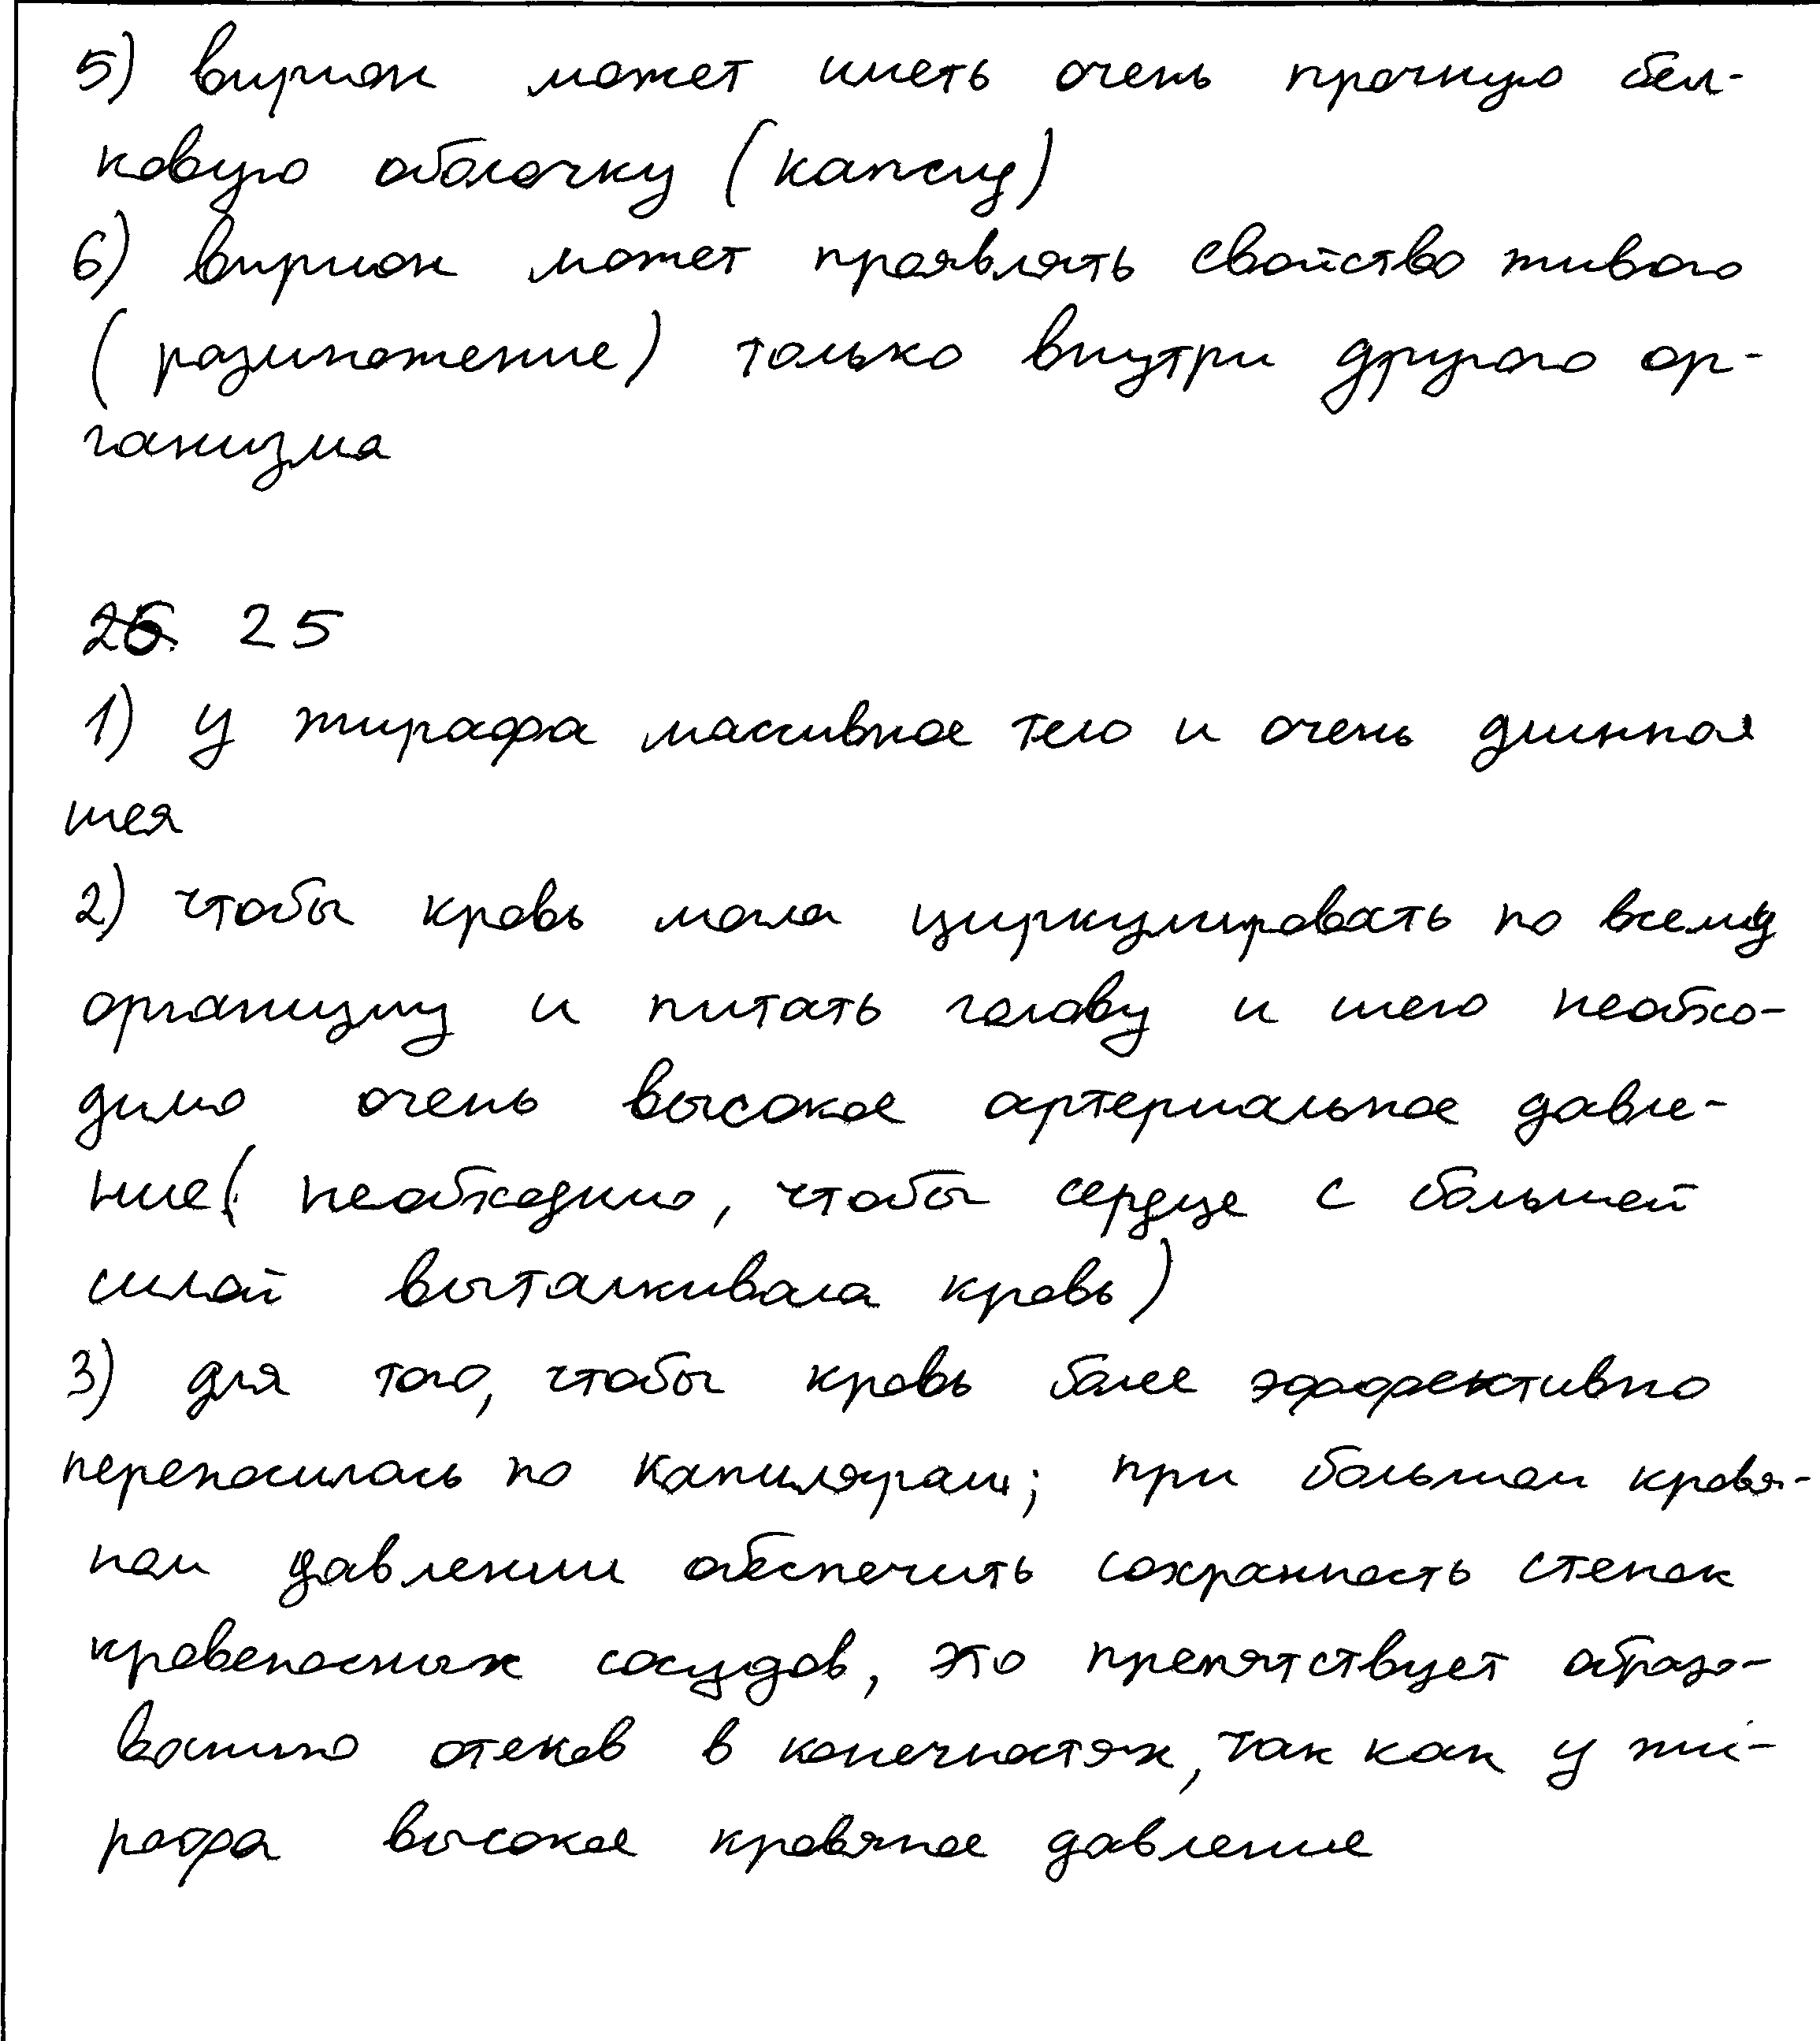 5) вирион может иметь очень прочную бел-
ковую оболочку (капсид)
6) вирион может проявлять свойство живого
(размножение) только внутри другого ор-
ганизма
26. 25
1) У жирафа массивное тело и очень длинная
шея
2) чтобы кровь могла циркулировать по всему
организму и питать голову и шею необхо-
димо очень высокое артериальное давле-
ние (необходимо, чтобы сердце с большей
силой выталкивала кровь)
3) для того, чтобы кровь более эффективно
переносилась по капилярам; при большом кровя-
ном давлении обеспечить сохранность стенок
кровеносных сосудов, это препятствует образо-
ванию отеков в конечностях, так как у жи-
рафа высокое кровяное давление